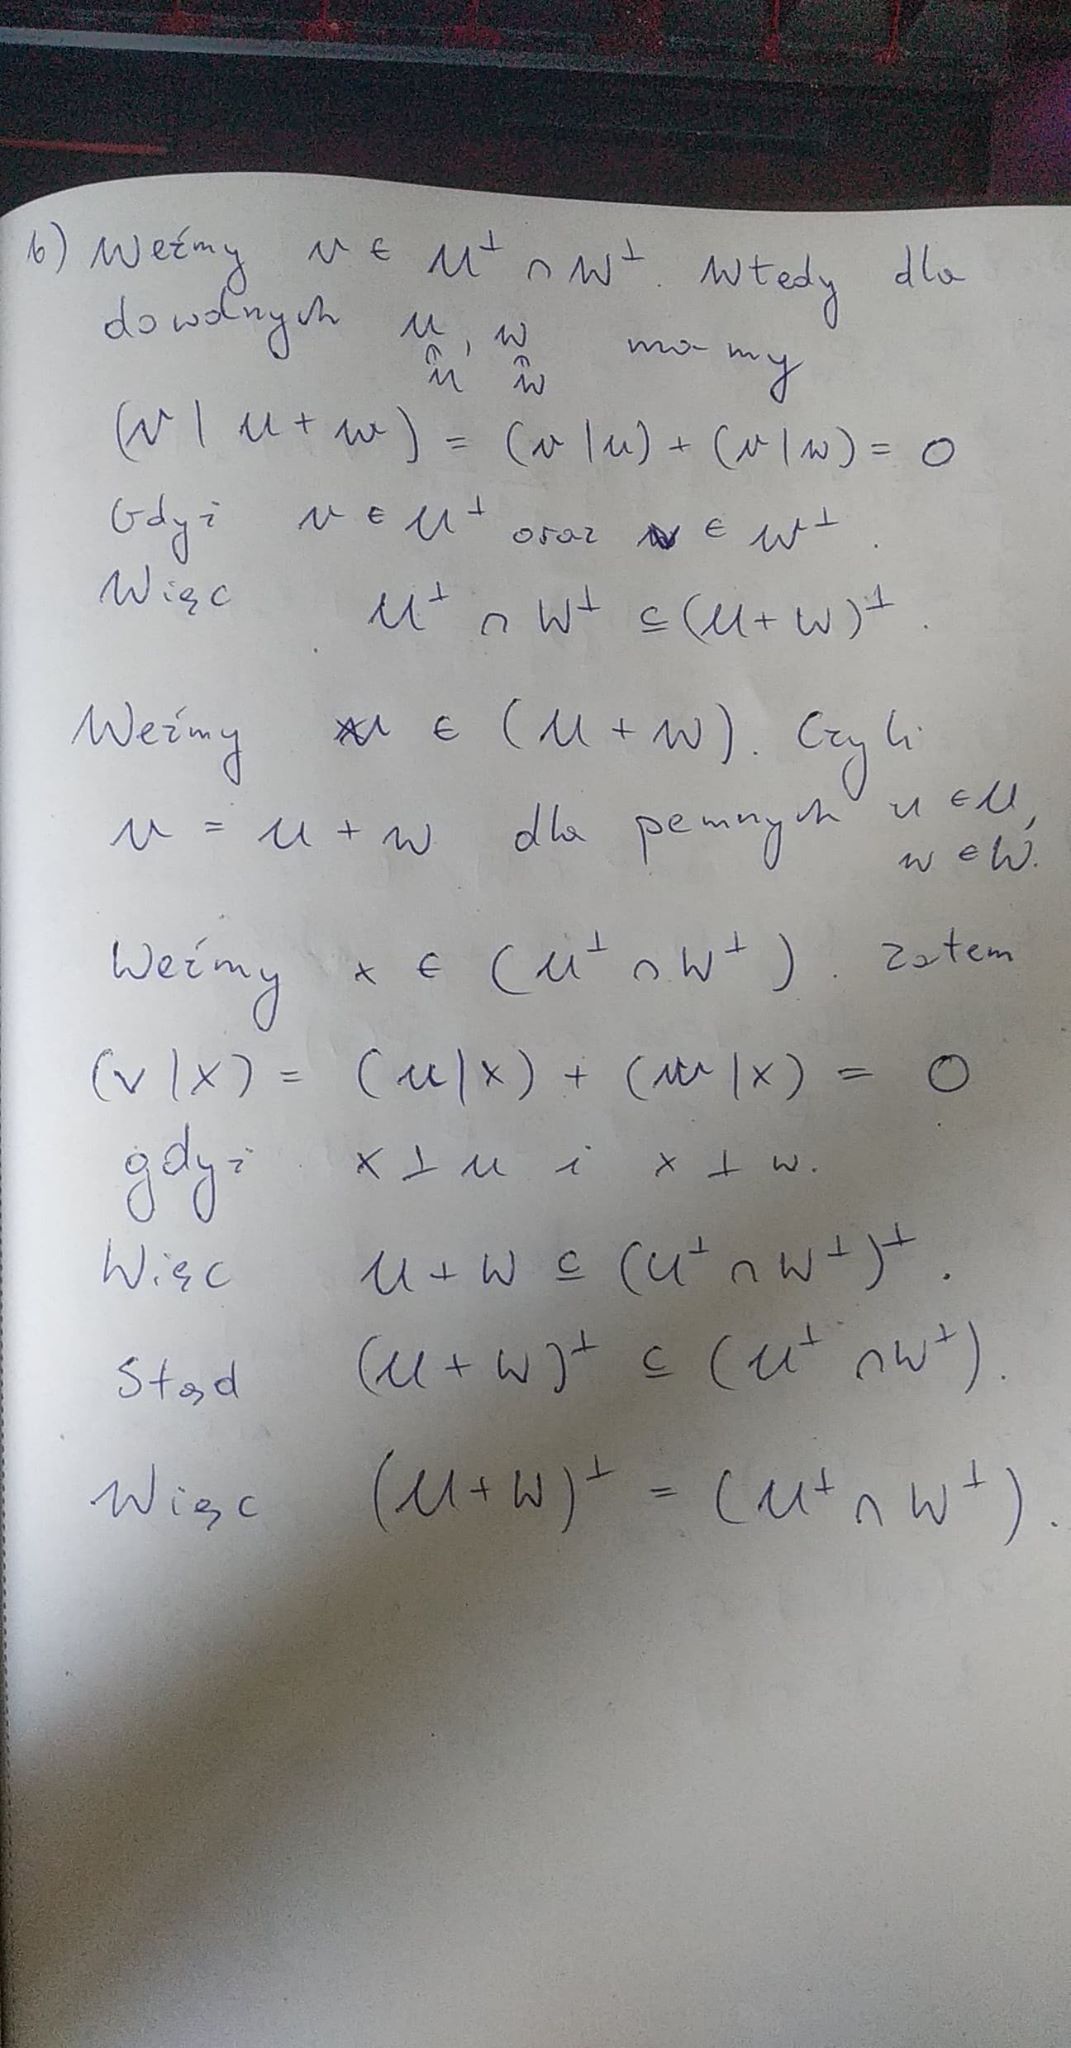 b) Weźmy v ∈ U⊥ ∩ W⊥. Wtedy dla
dowolnych u, w mamy
∈U ∈W
(v | u + w) = (v | u) + (v | w) = 0
Gdyż v ∈ U⊥ oraz v ∈ W⊥.
Więc U⊥ ∩ W⊥ ⊆ (U + W)⊥.
Weźmy v ∈ (U + W). Czyli
v = u + w dla pewnych u ∈ U,
w ∈ W.
Weźmy x ∈ (U⊥ ∩ W⊥). Zatem
(v | x) = (u | x) + (w | x) = 0
gdyż x ⊥ u i x ⊥ w.
Więc U + W ⊆ (U⊥ ∩ W⊥)⊥.
Stąd (U + W)⊥ ⊆ (U⊥ ∩ W⊥).
Więc (U + W)⊥ = (U⊥ ∩ W⊥).